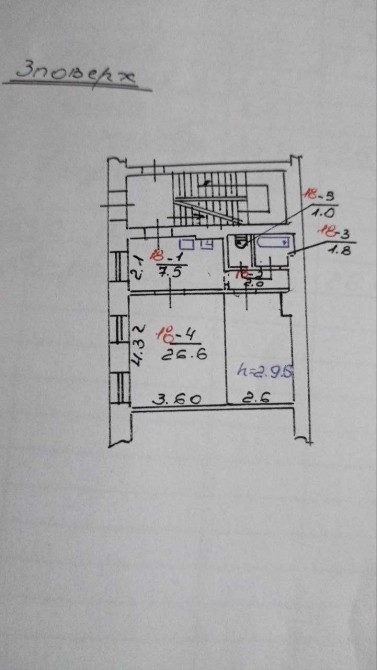 3 поверх
18-9
1.0
18-3
1.8
18-1
7.5
2.1
18-2
2.0
18-4
26.6
4.32
h=2.95
3.60
2.6